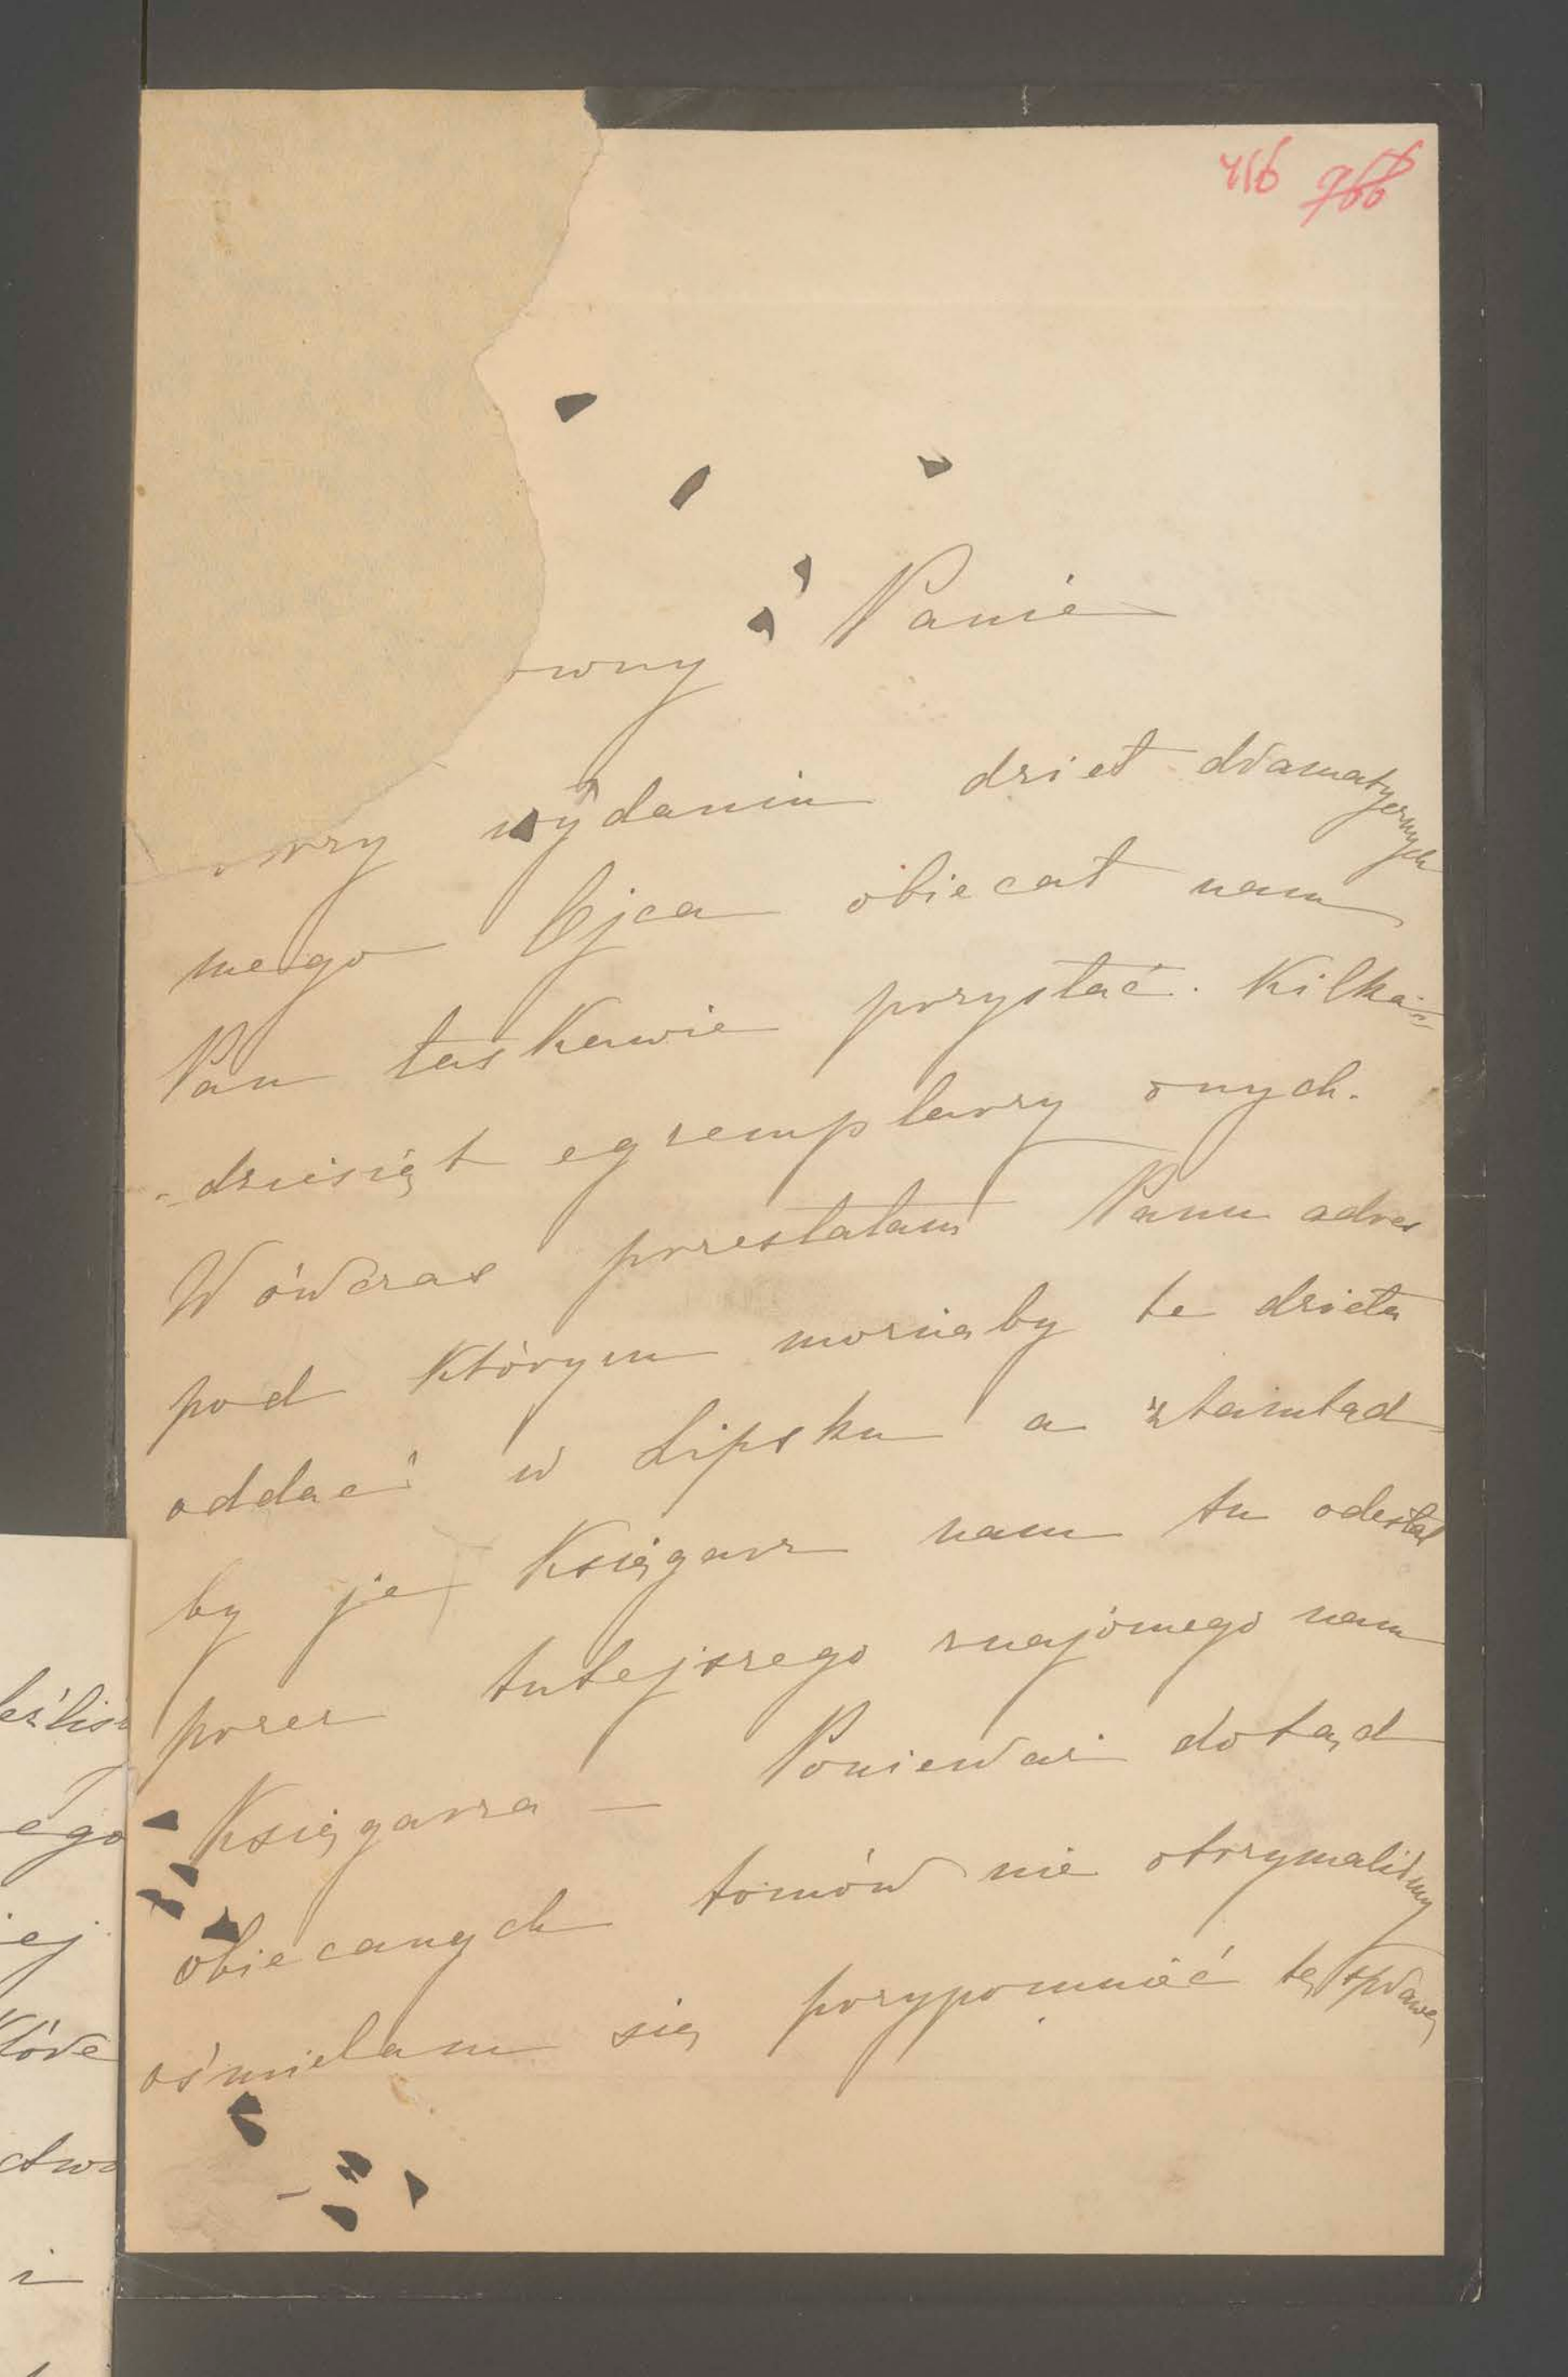 456 766
owny Panie
przy wydaniu dzieł dramatycznych
mego Ojca obiecał nam
Pan łaskawie przysłać. Kilka-
-dziesiąt egzemplarzy onych.
Wówczas przesłałam Panu adres
pod którym możnaby te dzieła
oddać w Lipsku a ztamtąd
by je Księgarz nam tu odesłał
przez tutejszego znajomego nam
Księgarza — Ponieważ dotąd
obiecanych tomów nie otrzymaliśmy
ośmielam się przypomnieć tę sprawę
ego
ej
które
ctwo
i